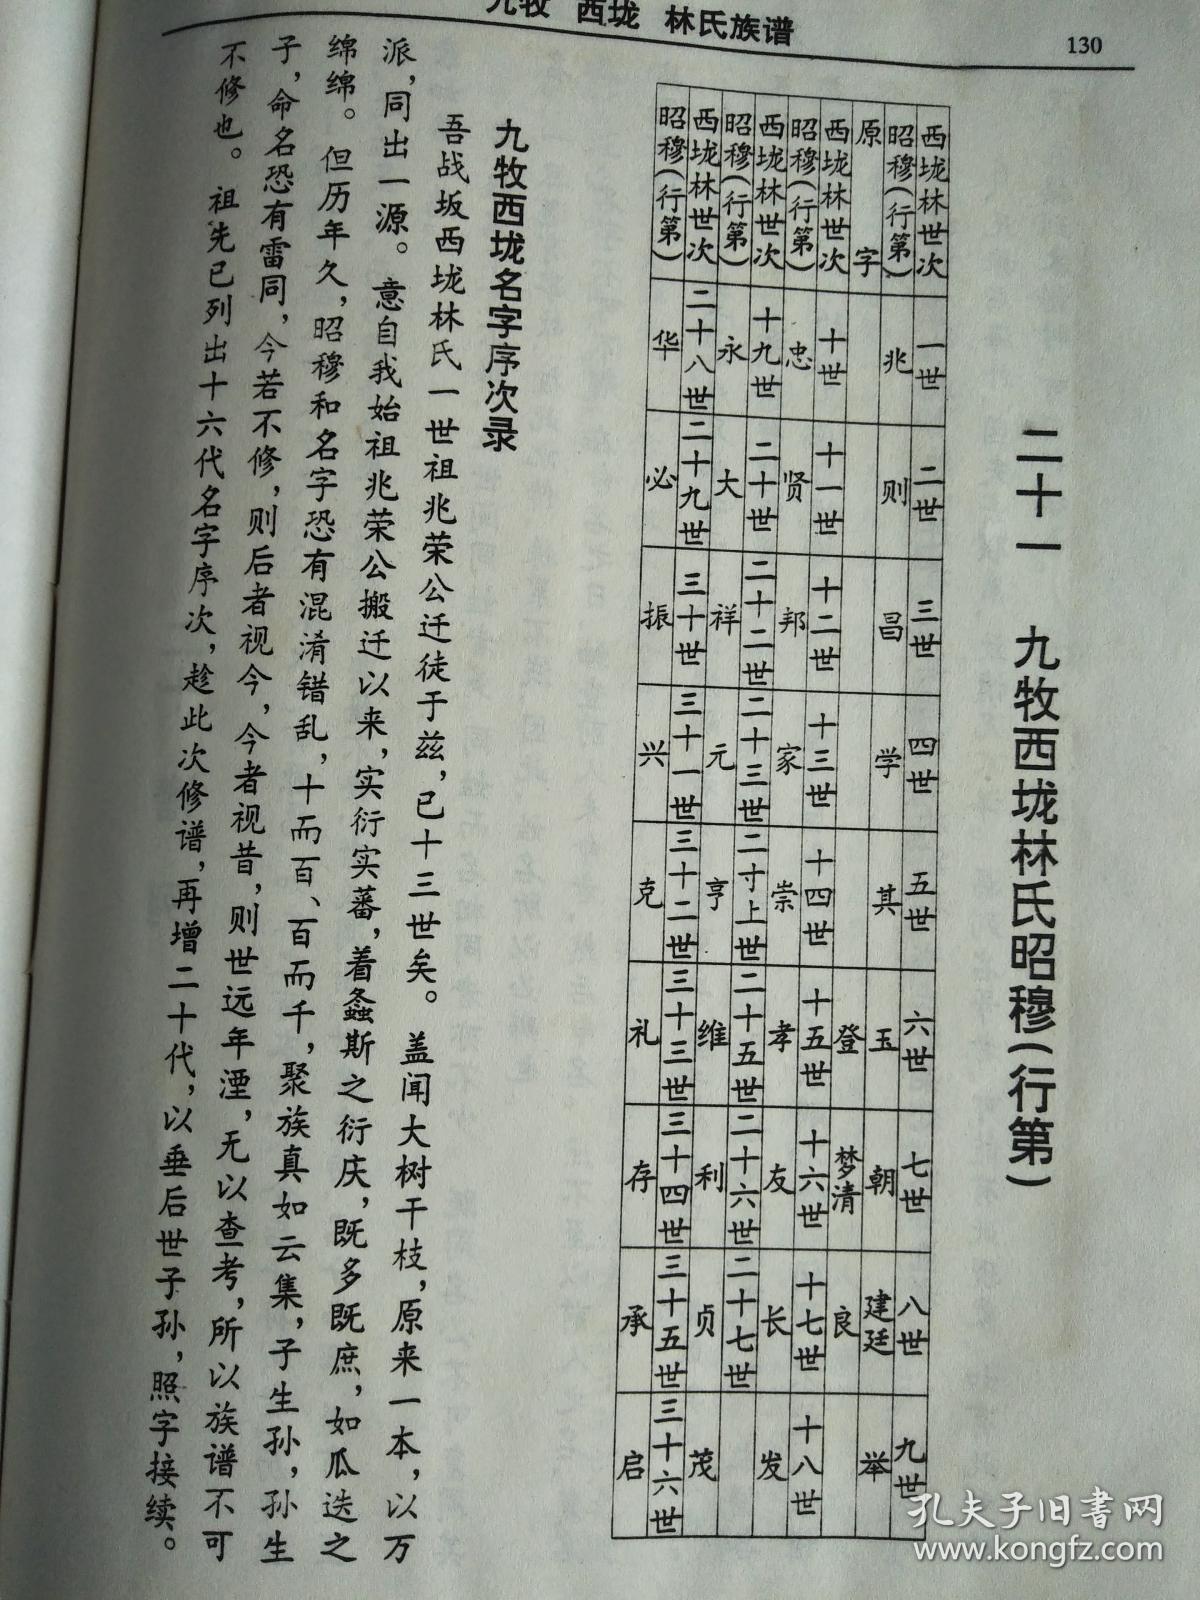 九牧 西垅 林氏族谱
130
二十一 九牧西垅林氏昭穆(行第)
西垅林世次 一世 二世 三世 四世 五世 六世 七世 八世 九世
昭穆(行第) 兆 则 昌 学 其 玉 朝 建廷 举
原字 登 梦清 良
西垅林世次 十世 十一世 十二世 十三世 十四世 十五世 十六世 十七世 十八世
昭穆(行第) 忠 贤 邦 家 崇 孝 友 长 发
西垅林世次 十九世 二十世 二十二世 二十三世 二寸上世 二十五世 二十六世 二十七世
昭穆(行第) 永 大 祥 元 亨 维 利 贞 茂
西垅林世次 二十八世 二十九世 三十世 三十一世 三十二世 三十三世 三十四世 三十五世 三十六世
昭穆(行第) 华 必 振 兴 克 礼 存 承 启
九牧西垅名字序次录
吾战坂西垅林氏一世祖兆荣公迁徒于兹,已十三世矣。盖闻大树干枝,原来一本,以万
派,同出一源。意自我始祖兆荣公搬迁以来,实衍实蕃,着螽斯之衍庆,既多既庶,如瓜迭之
绵绵。但历年久,昭穆和名字恐有混淆错乱,十而百、百而千,聚族真如云集,子生孙,孙生
子,命名恐有雷同,今若不修,则后者视今,今者视昔,则世远年湮,无以查考,所以族谱不可
不修也。祖先已列出十六代名字序次,趁此次修谱,再增二十代,以垂后世子孙,照字接续。
孔夫子旧书网
www.kongfz.com